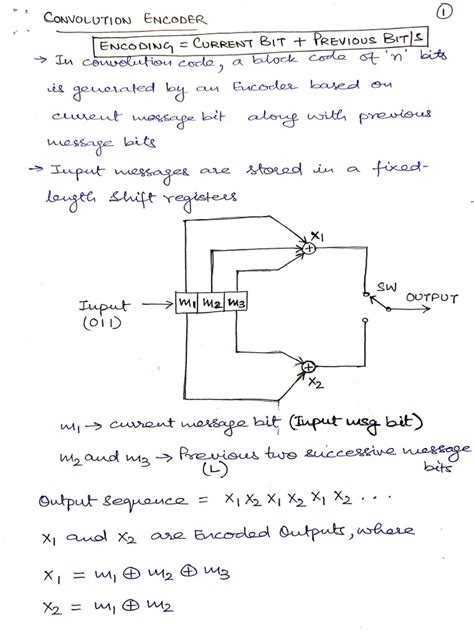 CONVOLUTION ENCODER
1
ENCODING = CURRENT BIT + PREVIOUS BIT/S
→ In convolution code, a block code of 'n' bits
is generated by an Encoder based on
current message bit along with previous
message bits
→ Input messages are stored in a fixed-
length Shift registers
X1
SW
OUTPUT
Input → m1 m2 m3
(011)
X2
m1 → current message bit (Input msg bit)
m2 and m3 → Previous two successive message
(L) bits
Output sequence = X1 X2 X1 X2 X1 X2 ...
X1 and X2 are Encoded Outputs, where
X1 = m1 ⊕ m2 ⊕ m3
X2 = m1 ⊕ m2